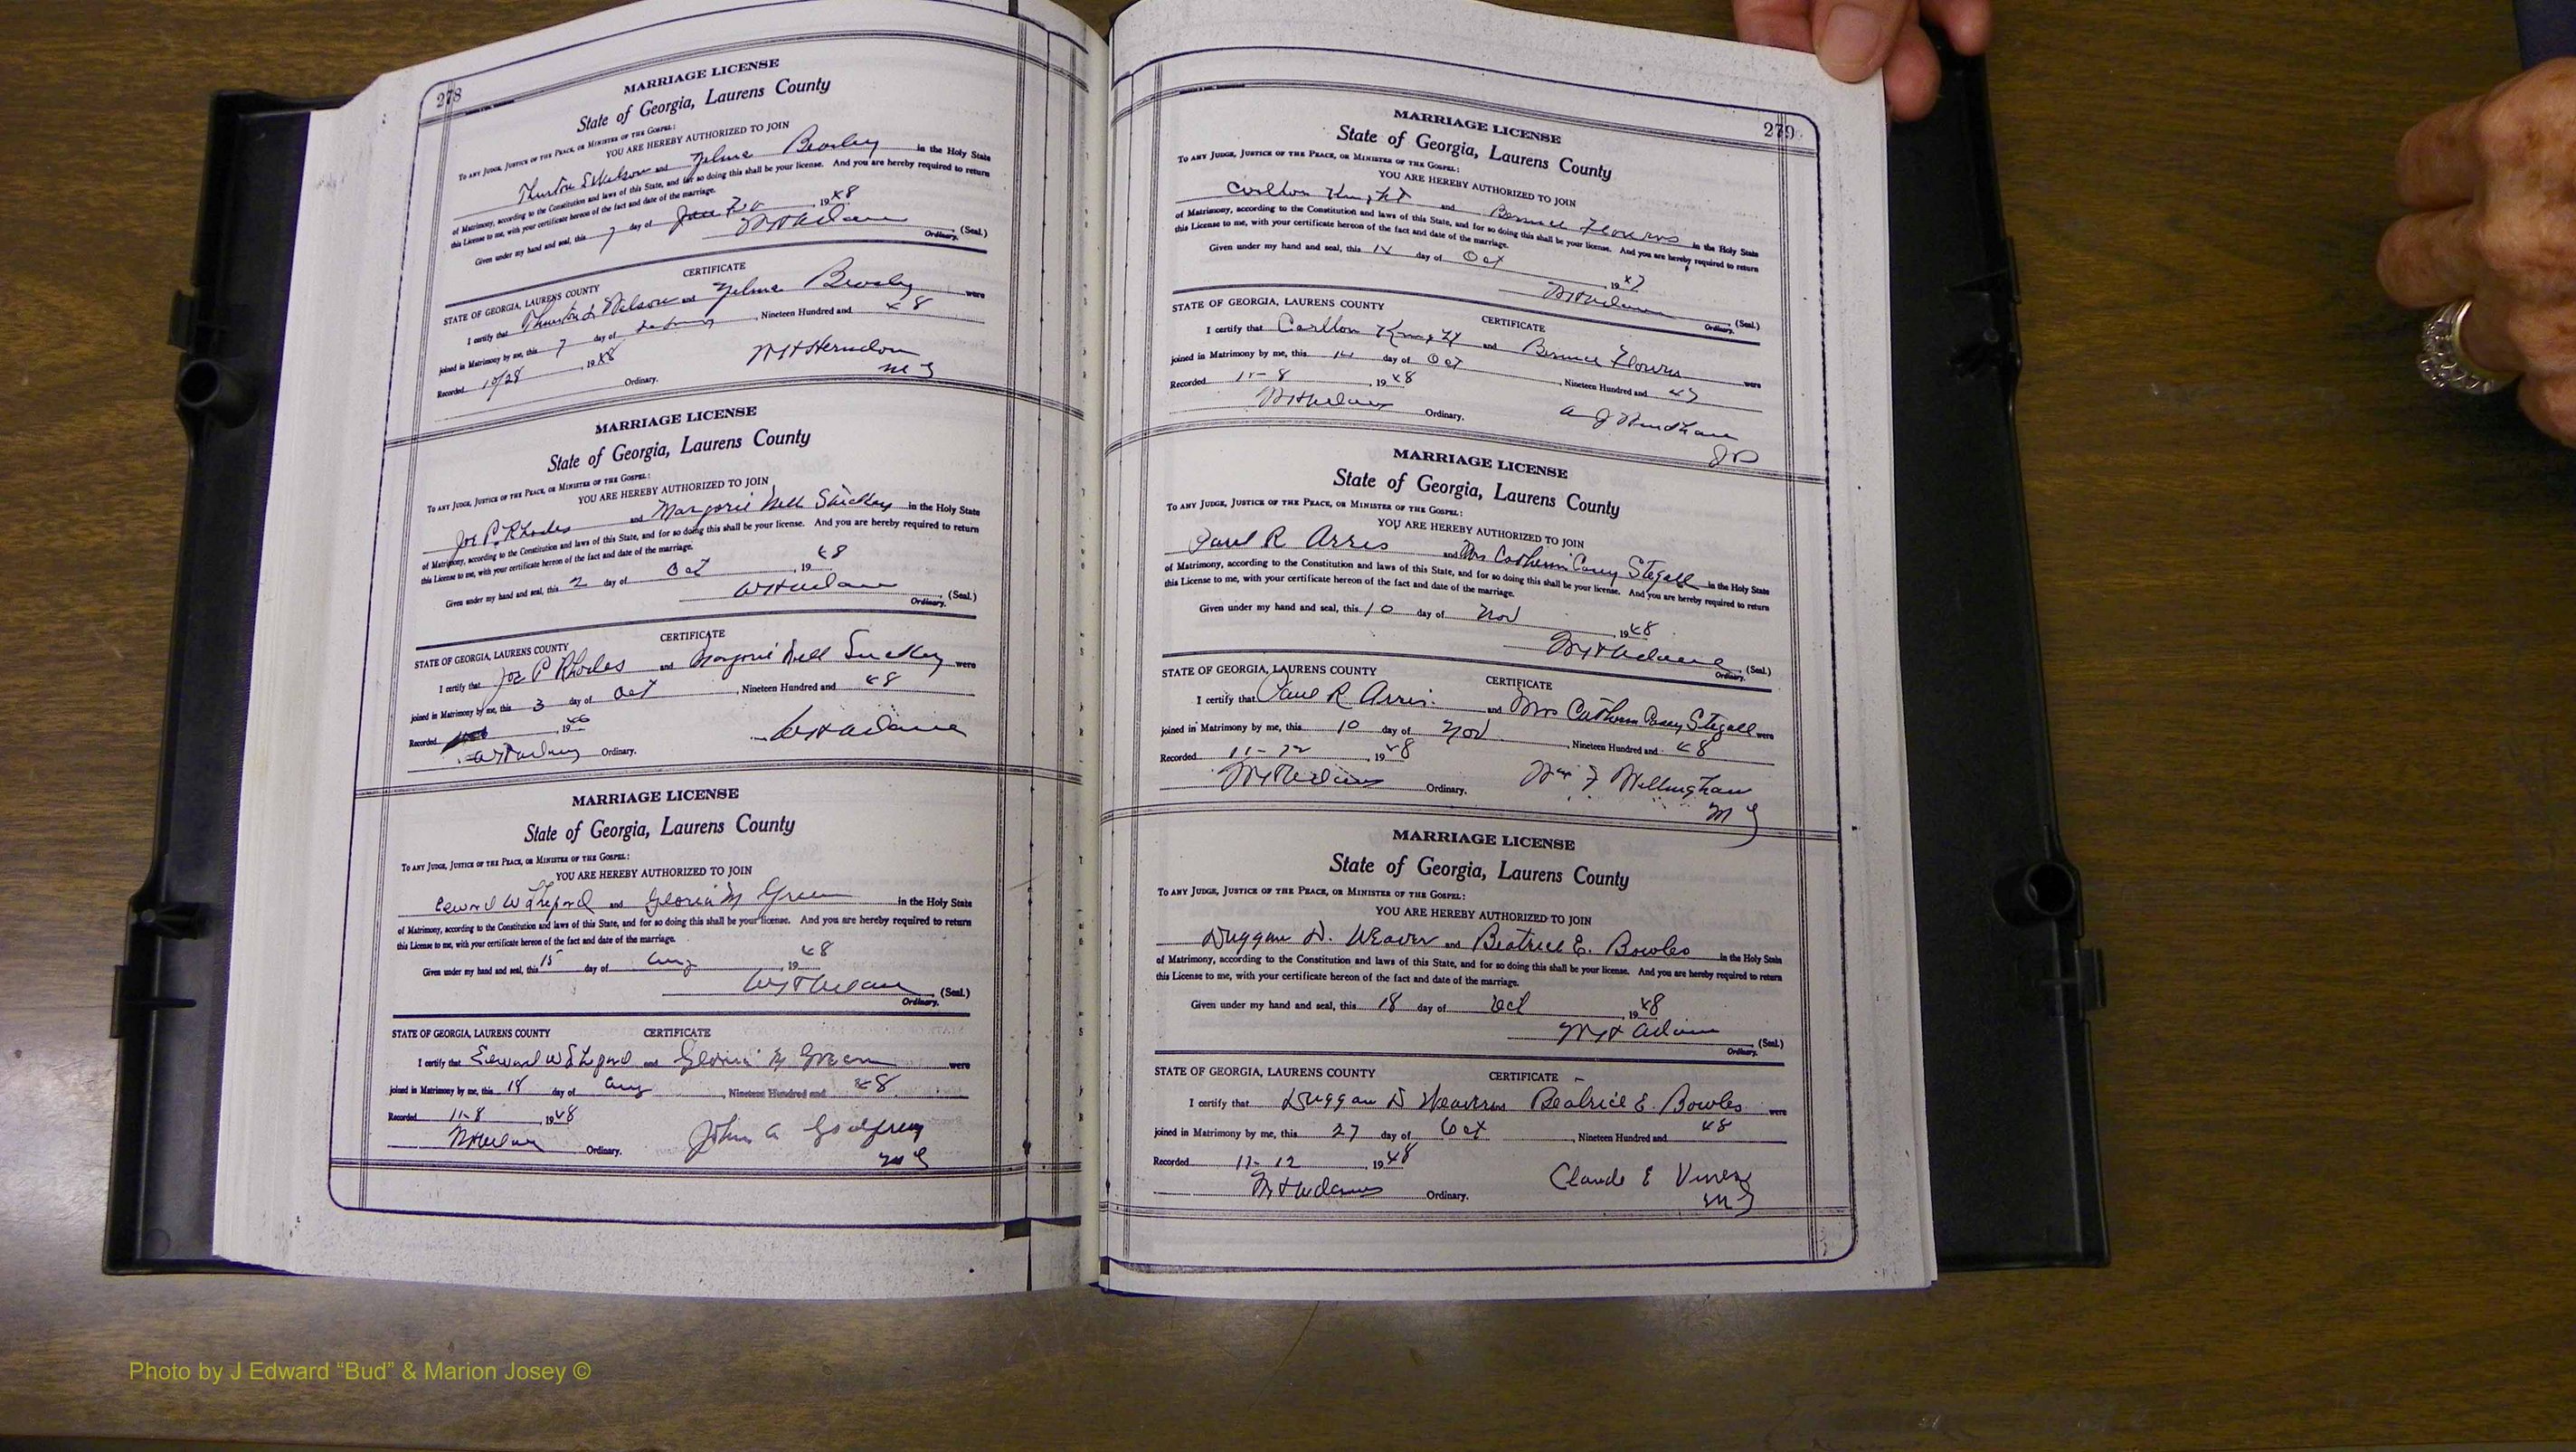 278
MARRIAGE LICENSE
State of Georgia, Laurens County
TO ANY JUDGE, JUSTICE OF THE PEACE, OR MINISTER OF THE GOSPEL:
YOU ARE HEREBY AUTHORIZED TO JOIN
and Beasley in the Holy State
of Matrimony, according to the Constitution and laws of this State, and for so doing this shall be your license. And you are hereby required to return
this License to me, with your certificate hereon of the fact and date of the marriage.
Given under my hand and seal, this 7 day of 1948
(Seal.)
Ordinary.
CERTIFICATE
STATE OF GEORGIA, LAURENS COUNTY
I certify that and Beasley were
joined in Matrimony by me, this 7 day of , Nineteen Hundred and 48
Recorded 10/28 , 1948
W H Herndon
Ordinary.
M G
MARRIAGE LICENSE
State of Georgia, Laurens County
TO ANY JUDGE, JUSTICE OF THE PEACE, OR MINISTER OF THE GOSPEL:
YOU ARE HEREBY AUTHORIZED TO JOIN
Joe P. Rhodes and Marjorie Nell Stuckey in the Holy State
of Matrimony, according to the Constitution and laws of this State, and for so doing this shall be your license. And you are hereby required to return
this License to me, with your certificate hereon of the fact and date of the marriage.
Given under my hand and seal, this 2 day of Oct , 1948
W H Adams (Seal.)
Ordinary.
CERTIFICATE
STATE OF GEORGIA, LAURENS COUNTY
I certify that Joe P Rhodes and Marjorie Nell Stuckey were
joined in Matrimony by me, this 3 day of Oct , Nineteen Hundred and 48
Recorded , 19
W H Adams
Ordinary.
MARRIAGE LICENSE
State of Georgia, Laurens County
TO ANY JUDGE, JUSTICE OF THE PEACE, OR MINISTER OF THE GOSPEL:
YOU ARE HEREBY AUTHORIZED TO JOIN
Edward W Shepard and Gloria M Green in the Holy State
of Matrimony, according to the Constitution and laws of this State, and for so doing this shall be your license. And you are hereby required to return
this License to me, with your certificate hereon of the fact and date of the marriage.
Given under my hand and seal, this 15 day of Aug , 1948
W H Adams (Seal.)
Ordinary.
STATE OF GEORGIA, LAURENS COUNTY CERTIFICATE
I certify that Edward W Shepard and Gloria M Green were
joined in Matrimony by me, this 18 day of Aug , Nineteen Hundred and 48
Recorded 11-8 , 1948
W H Adams Ordinary. John A Godfrey
M G
279
MARRIAGE LICENSE
State of Georgia, Laurens County
TO ANY JUDGE, JUSTICE OF THE PEACE, OR MINISTER OF THE GOSPEL:
YOU ARE HEREBY AUTHORIZED TO JOIN
Carlton Knight and Bernice Flowers in the Holy State
of Matrimony, according to the Constitution and laws of this State, and for so doing this shall be your license. And you are hereby required to return
this License to me, with your certificate hereon of the fact and date of the marriage.
Given under my hand and seal, this 14 day of Oct , 1947
W H Adams (Seal.)
Ordinary.
STATE OF GEORGIA, LAURENS COUNTY CERTIFICATE
I certify that Carlton Knight and Bernice Flowers were
joined in Matrimony by me, this day of Oct , Nineteen Hundred and 47
Recorded 11-8 , 1948
W H Adams Ordinary. A J
JP
MARRIAGE LICENSE
State of Georgia, Laurens County
TO ANY JUDGE, JUSTICE OF THE PEACE, OR MINISTER OF THE GOSPEL:
YOU ARE HEREBY AUTHORIZED TO JOIN
Paul R Arris and Mrs Stegall in the Holy State
of Matrimony, according to the Constitution and laws of this State, and for so doing this shall be your license. And you are hereby required to return
this License to me, with your certificate hereon of the fact and date of the marriage.
Given under my hand and seal, this 10 day of Nov , 1948
W H Adams (Seal.)
Ordinary.
STATE OF GEORGIA, LAURENS COUNTY CERTIFICATE
I certify that Paul R Arris and Mrs Stegall were
joined in Matrimony by me, this 10 day of Nov , Nineteen Hundred and 48
Recorded 11-12 , 1948
W H Adams Ordinary. Willingham
M G
MARRIAGE LICENSE
State of Georgia, Laurens County
TO ANY JUDGE, JUSTICE OF THE PEACE, OR MINISTER OF THE GOSPEL:
YOU ARE HEREBY AUTHORIZED TO JOIN
Duggan D. Weaver and Beatrice E. Bowles in the Holy State
of Matrimony, according to the Constitution and laws of this State, and for so doing this shall be your license. And you are hereby required to return
this License to me, with your certificate hereon of the fact and date of the marriage.
Given under my hand and seal, this 18 day of Oct , 1948
W H Adams (Seal.)
Ordinary.
STATE OF GEORGIA, LAURENS COUNTY CERTIFICATE
I certify that Duggan D Weaver and Beatrice E. Bowles were
joined in Matrimony by me, this 27 day of Oct , Nineteen Hundred and 48
Recorded 11-12 , 1948
W H Adams Ordinary. Claude E Vines
M G
Photo by J Edward “Bud” & Marion Josey ©